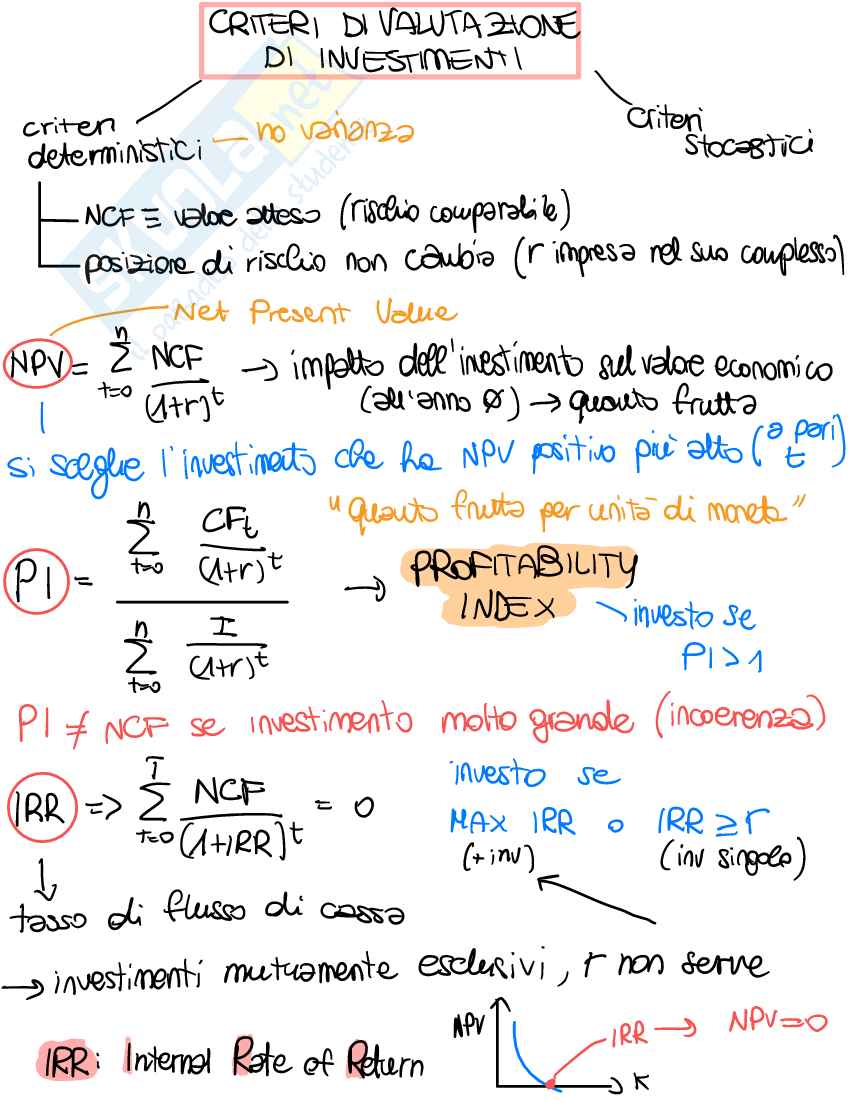 CRITERI DI VALUTAZIONE
DI INVESTIMENTI
criteri
deterministici — no varianza
criteri
stocastici
NCF ≡ valore atteso (rischio comparabile)
posizione di rischio non cambia (r impresa nel suo complesso)
SKUOLA.net
Net Present Value
NPV = \sum_{t=0}^{n} \frac{NCF}{(1+r)^t} → impatto dell'investimento sul valore economico
(all'anno 0) → quanto frutta
si sceglie l'investimento che ha NPV positivo più alto (a pari t)
"quanto frutta per unità di moneta"
PI = \frac{\sum_{t=0}^{n} \frac{CF_t}{(1+r)^t}}{\sum_{t=0}^{n} \frac{I}{(1+r)^t}} → PROFITABILITY
INDEX
investo se
PI > 1
PI ≠ NCF se investimento molto grande (incoerenza)
IRR => \sum_{t=0}^{T} \frac{NCF}{(1+IRR)^t} = 0
investo se
MAX IRR o IRR ≥ r
(+ inv) (inv singolo)
tasso di flusso di cassa
→ investimenti mutuamente esclusivi, r non serve
NPV
IRR → NPV=0
K
IRR: Internal Rate of Return